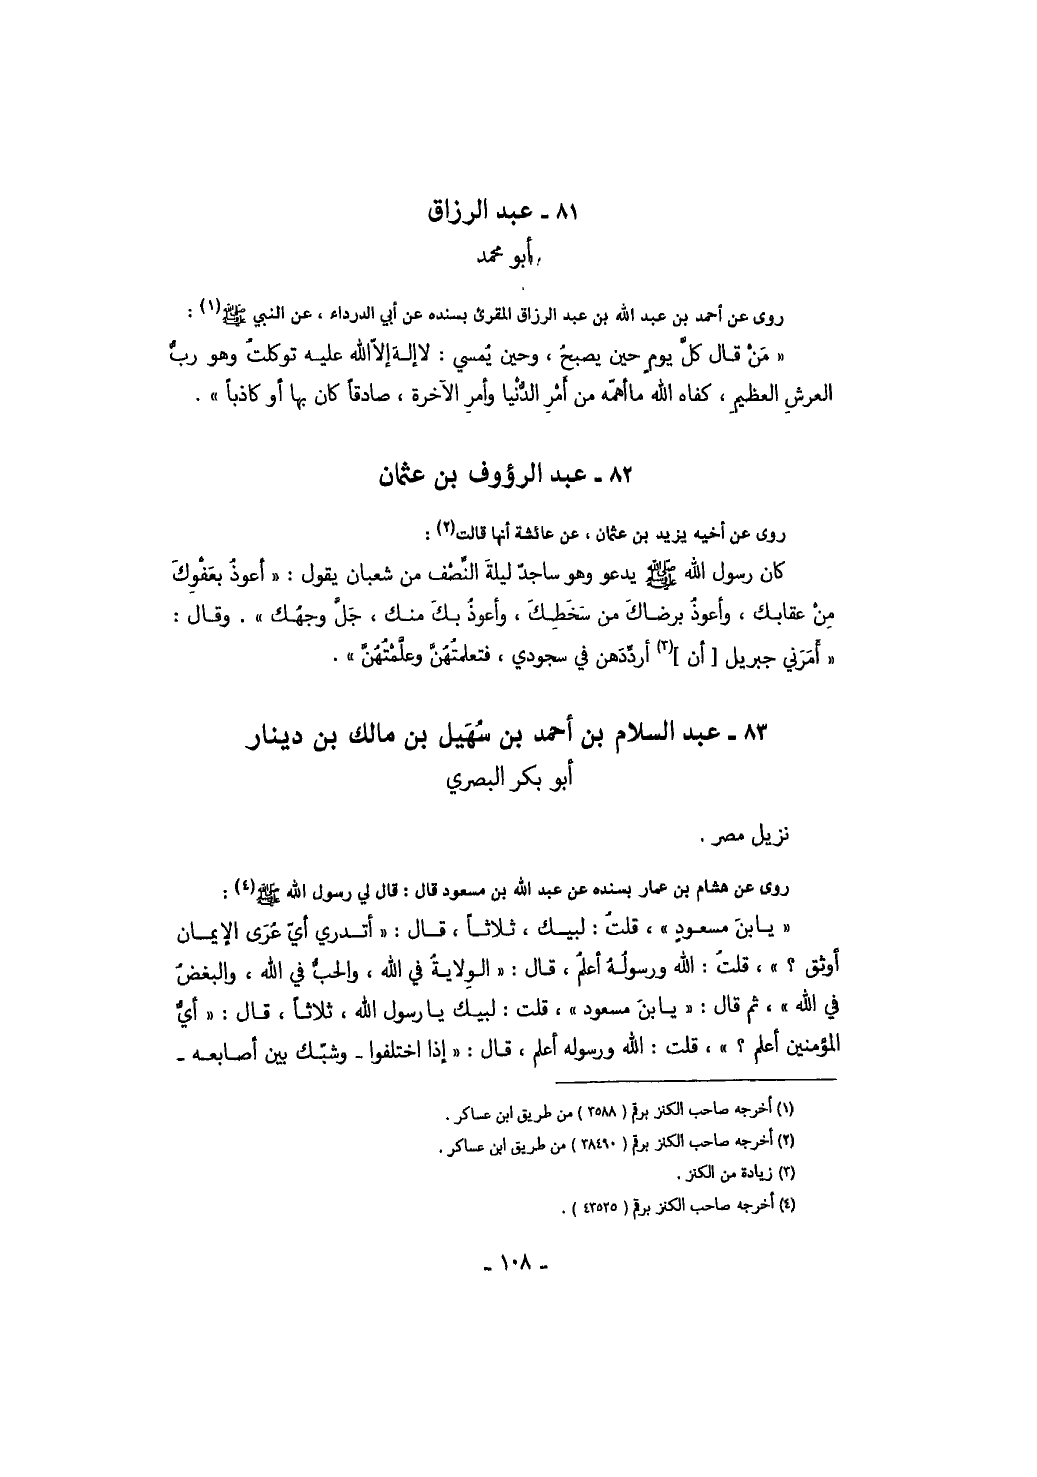 ٨١ ـ عبد الرزاق
أبو محمد
روى عن أحمد بن عبد الله بن عبد الرزاق المقرئ بسنده عن أبي الدرداء ، عن النبي ﷺ(١) :
« مَنْ قال كلَّ يومٍ حين يصبحُ ، وحين يُمسي : لاإلهَ إلاّالله عليه توكلتُ وهو ربُّ
العرشِ العظيمِ ، كفاه الله ماأهمّه من أَمْرِ الدُّنْيا وأمرِ الآخرة ، صادقاً كان بها أو كاذباً » .
٨٢ ـ عبد الرؤوف بن عثمان
روى عن أخيه يزيد بن عثمان ، عن عائشة أنها قالت(٢) :
كان رسول الله ﷺ يدعو وهو ساجدٌ ليلةَ النِّصْف من شعبان يقول : « أعوذُ بعَفْوِكَ
مِنْ عقابك ، وأعوذُ برضاكَ من سَخَطِكَ ، وأعوذُ بكَ منك ، جَلَّ وجهُك » . وقال :
« أَمَرَني جبريل [ أن ](٣) أردِّدَهن في سجودي ، فتعلمتُهُنَّ وعلَّمْتُهُنَّ » .
٨٣ ـ عبد السلام بن أحمد بن سُهَيل بن مالك بن دينار
أبو بكر البصري
نزيل مصر .
روى عن هشام بن عمار بسنده عن عبد الله بن مسعود قال : قال لي رسول الله ﷺ(٤) :
« يابنَ مسعودٍ » ، قلتُ : لبيك ، ثلاثاً ، قال : « أتدري أيّ عُرَى الإيمان
أوثق ؟ » ، قلتُ : الله ورسولُهُ أعلمُ ، قال : « الوِلايةُ في الله ، والحبُّ في الله ، والبغضُ
في الله » ، ثم قال : « يابنَ مسعود » ، قلت : لبيك يارسول الله ، ثلاثاً ، قال : « أيُّ
المؤمنين أعلم ؟ » ، قلت : الله ورسوله أعلم ، قال : « إذا اختلفوا ـ وشبّك بين أصابعه ـ
(١) أخرجه صاحب الكنز برقم ( ٣٥٨٨ ) من طريق ابن عساكر .
(٢) أخرجه صاحب الكنز برقم ( ٣٨٤٩٠ ) من طريق ابن عساكر .
(٣) زيادة من الكنز .
(٤) أخرجه صاحب الكنز برقم ( ٤٣٥٢٥ ) .
ـ ١٠٨ ـ